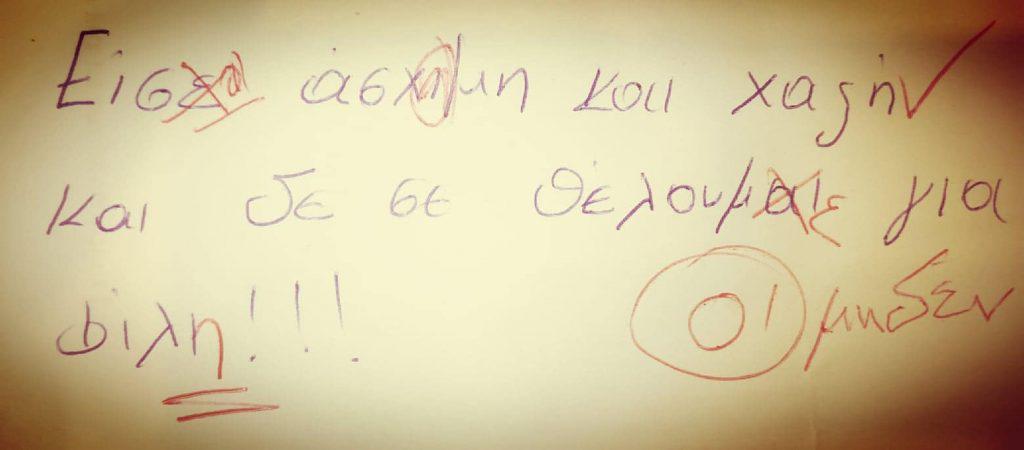 Είσεαι άσχημη και χαζή ✓
και δε σε θέλουμαιε για
φίλη!!! 0' μηδεν